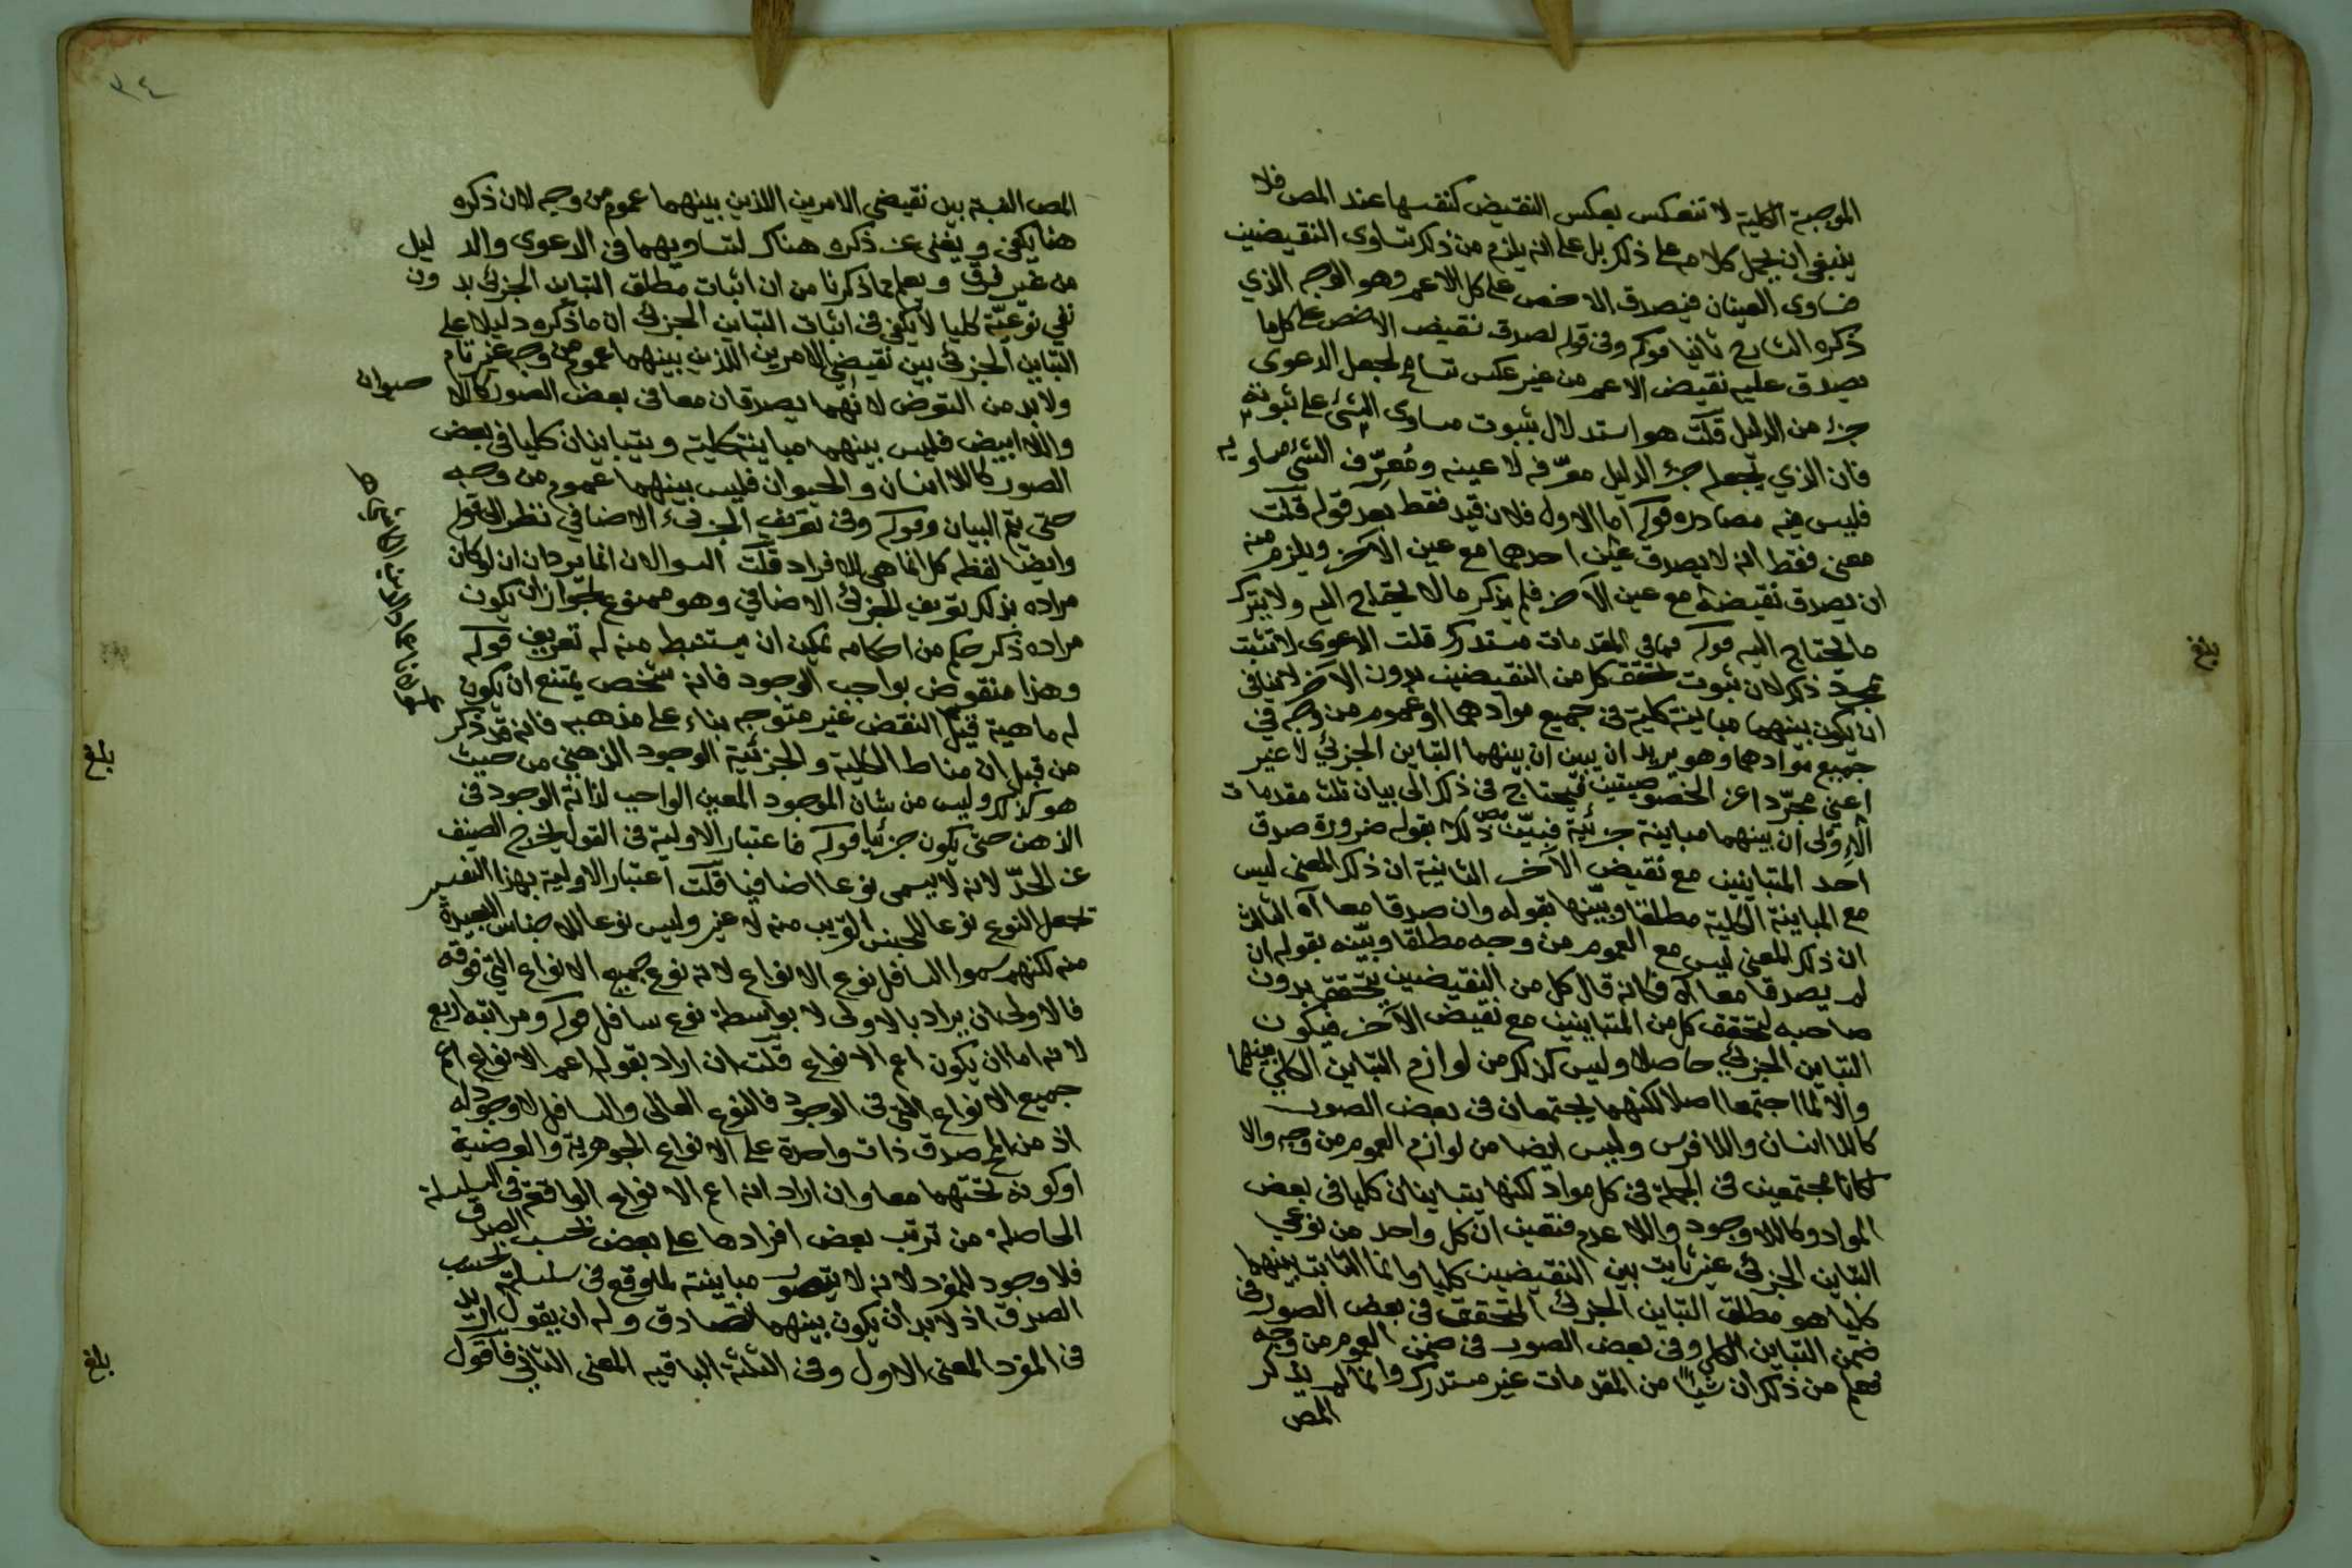 الموجبة الكلية لا تنعكس بعكس النقيض كنفسها عند المص فلا
ينبغي ان يحمل كلامه على ذلك بل على انه يلزم من ذلك تساوى النقيضين
فساوى العينان فيصدق الاخص على كل الاعم وهو الوجه الذي
ذكره الشارح ثانيا قوله وفى قوله لصدق نقيض الاخص على كل ما
يصدق عليه نقيض الاعم من غير عكس تسامح لجعل الدعوى
جزء من الدليل قلت هو استدلال بثبوت مساوى الشئ على ثبوته
فان الذي يجعله جزء الدليل معرّفه لا عينه ومُعرِّف الشئ مساو له
فليس فيه مصادرة قوله اما الاول فلان قيد فقط بعد قوله قلت
معنى فقط انه لا يصدق عين احدهما مع عين الآخر ويلزم منه
ان يصدق نقيضه مع عين الآخر فلم يذكر ما لا يحتاج اليه ولا يترك
ما يحتاج اليه قوله فما فى المقدمات مستدرك قلت الدعوى لا تثبت
بمجرد ذكر لان ثبوت تحقق كل من النقيضين بدون الآخر لا ينافي
ان يكون بينهما مباينة كلية فى جميع موادهما او عموم من وجه في
جميع موادهما وهو يريد ان يبين ان بينهما التباين الجزئي لا غير
اعني مجرّدا عن الخصوصيتين فيحتاج فى ذلك الى بيان ثلث مقدمات
الاولى ان بينهما مباينة جزئية فبيّن ذلك بقوله ضرورة صدق
احد المتباينين مع نقيض الآخر الثانية ان ذلك المعنى ليس
مع المباينة الكلية مطلقا وبيّنها بقوله وان صدقا معا آه الثالث
ان ذلك المعنى ليس مع العموم من وجه مطلقا وبيّنه بقوله ان
لم يصدقا معا آه فكانه قال كل من النقيضين يتحقق بدون
صاحبه لتحقق كل من المتباينين مع نقيض الآخر فيكون
التباين الجزئي حاصلا وليس كذلك من لوازم التباين الكلي بينهما
والا لما اجتمعا اصلا لكنهما يجتمعان فى بعض الصور
كاللا انسان واللا فرس وليس ايضا من لوازم العموم من وجه والا
لكانا مجتمعين فى الجملة فى كل مواد لكنها يتباينان كليا فى بعض
المواد كاللا وجود واللا عدم فتعين ان كل واحد من نوعي
التباين الجزئى غير ثابت بين النقيضين كليا وانما الثابت بينهما
كليا هو مطلق التباين الجزئى المتحقق فى بعض الصور فى
ضمن التباين الكلي وفى بعض الصور فى ضمن العموم من وجه
فعلم من ذلك ان شيئا من المقدمات غير مستدرك وانما لم يذكر
المص
بلغ
٣٤
المص النسبة بين نقيضي الامرين اللذين بينهما عموم من وجه لان ذكره
هنا يكفى ويغنى عن ذكره هناك لتساويهما فى الدعوى والدليل
من غير فرق ويعلم مما ذكرنا من ان اثبات مطلق التباين الجزئى بدون
نفي نوعيّته كليا لا يكفى فى اثبات التباين الجزئى ان ما ذكره دليلا على
التباين الجزئى بين نقيضي الامرين اللذين بينهما عموم من وجه غير تام
ولا بد من التعرض لانهما يصدقان معا فى بعض الصور كاللا حيوان
واللا ابيض فليس بينهما مباينة كلية ويتباينان كليا فى بعض
الصور كاللا انسان والحيوان فليس بينهما عموم من وجه
حتى يتم البيان وقوله وفى تعريف الجزئى الاضافي نظر الى قوله
وايضا لفظه كل انما هى للافراد قلت السوالان انما يردان ان لو كان
مراده بذلك تعريف الجزئى الاضافي وهو ممنوع لجواز ان يكون
مراده ذكر حكم من احكامه يمكن ان يستنبط منه له تعريف قوله
وهذا منقوض بواجب الوجود فانه شخص يمتنع ان يكون
له ماهية قيل النقض غير متوجه بناء على مذهبه فانه قد ذكر
من قبل ان مناط الكلية والجزئية الوجود الذهني من حيث
هو كذلك وليس من شان الموجود المعين الواجب لذاته الوجود فى
الذهن حتى يكون جزئيا قوله فاعتبار الاولية فى القول يخرج الصنف
عن الحدّ لانه لا يسمى نوعا اضافيا قلت اعتبار الاولية بهذا التفسير
تجعل النوع نوعا للجنس القريب منه لا غير وليس نوعا للاجناس البعيدة
منه لكنهم سموا السافل نوع الانواع لانه نوع جميع الانواع التي فوقه
فالاولى ان يراد بالاولى لا بواسطة نوع سافل قوله ومراتبه اربع
لانه اما ان يكون اعم الانواع قلت ان اراد بقوله اعم الانواع اعم
جميع الانواع التى فى الوجود فالنوع العالى والسافل لا وجود له
اذ من المح صدق ذات واحدة على الانواع الجوهرية والعرضية
او كونه تحتهما معا وان اراد انه اعم الانواع الواقعة فى السلسلة
الحاصلة من ترتب بعض افرادها على بعض بحسب الصدق
فلا وجود للمفرد لانه لا يتصور مباينته لما وقع فى سلسلة بحسب
الصدق اذ لا بد ان يكون بينهما تصادق وله ان يقول اريد
فى المفرد المعنى الاول وفى الثلثة الباقيه المعنى الثاني فاقول
بلغ
بلغ